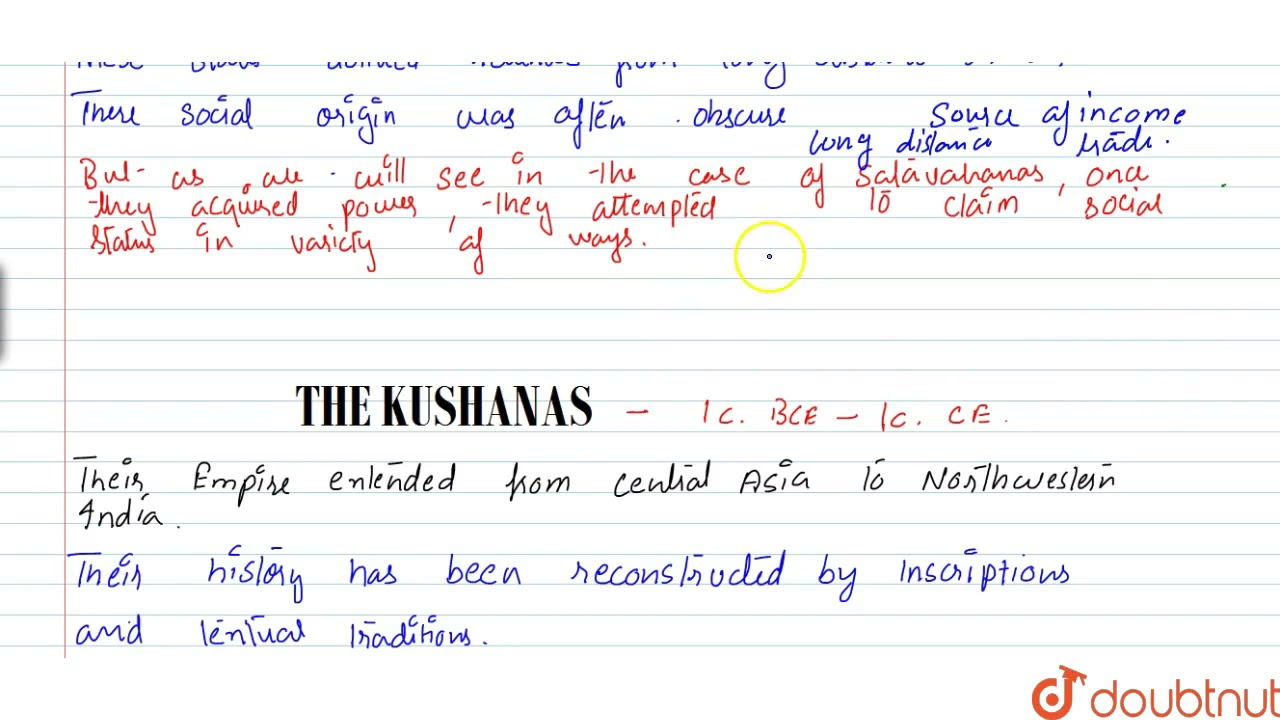 from long
There social origin was often obscure Source of income
long distance trade.
But as we will see in the case of Satavahanas, once
they acquired power, they attempted to claim social
status in variety of ways.
THE KUSHANAS – 1 c. BCE – 1 c. CE.
Their Empire extended from central Asia to Northwestern
India.
Their history has been reconstructed by Inscriptions
and textual traditions.
doubtnut